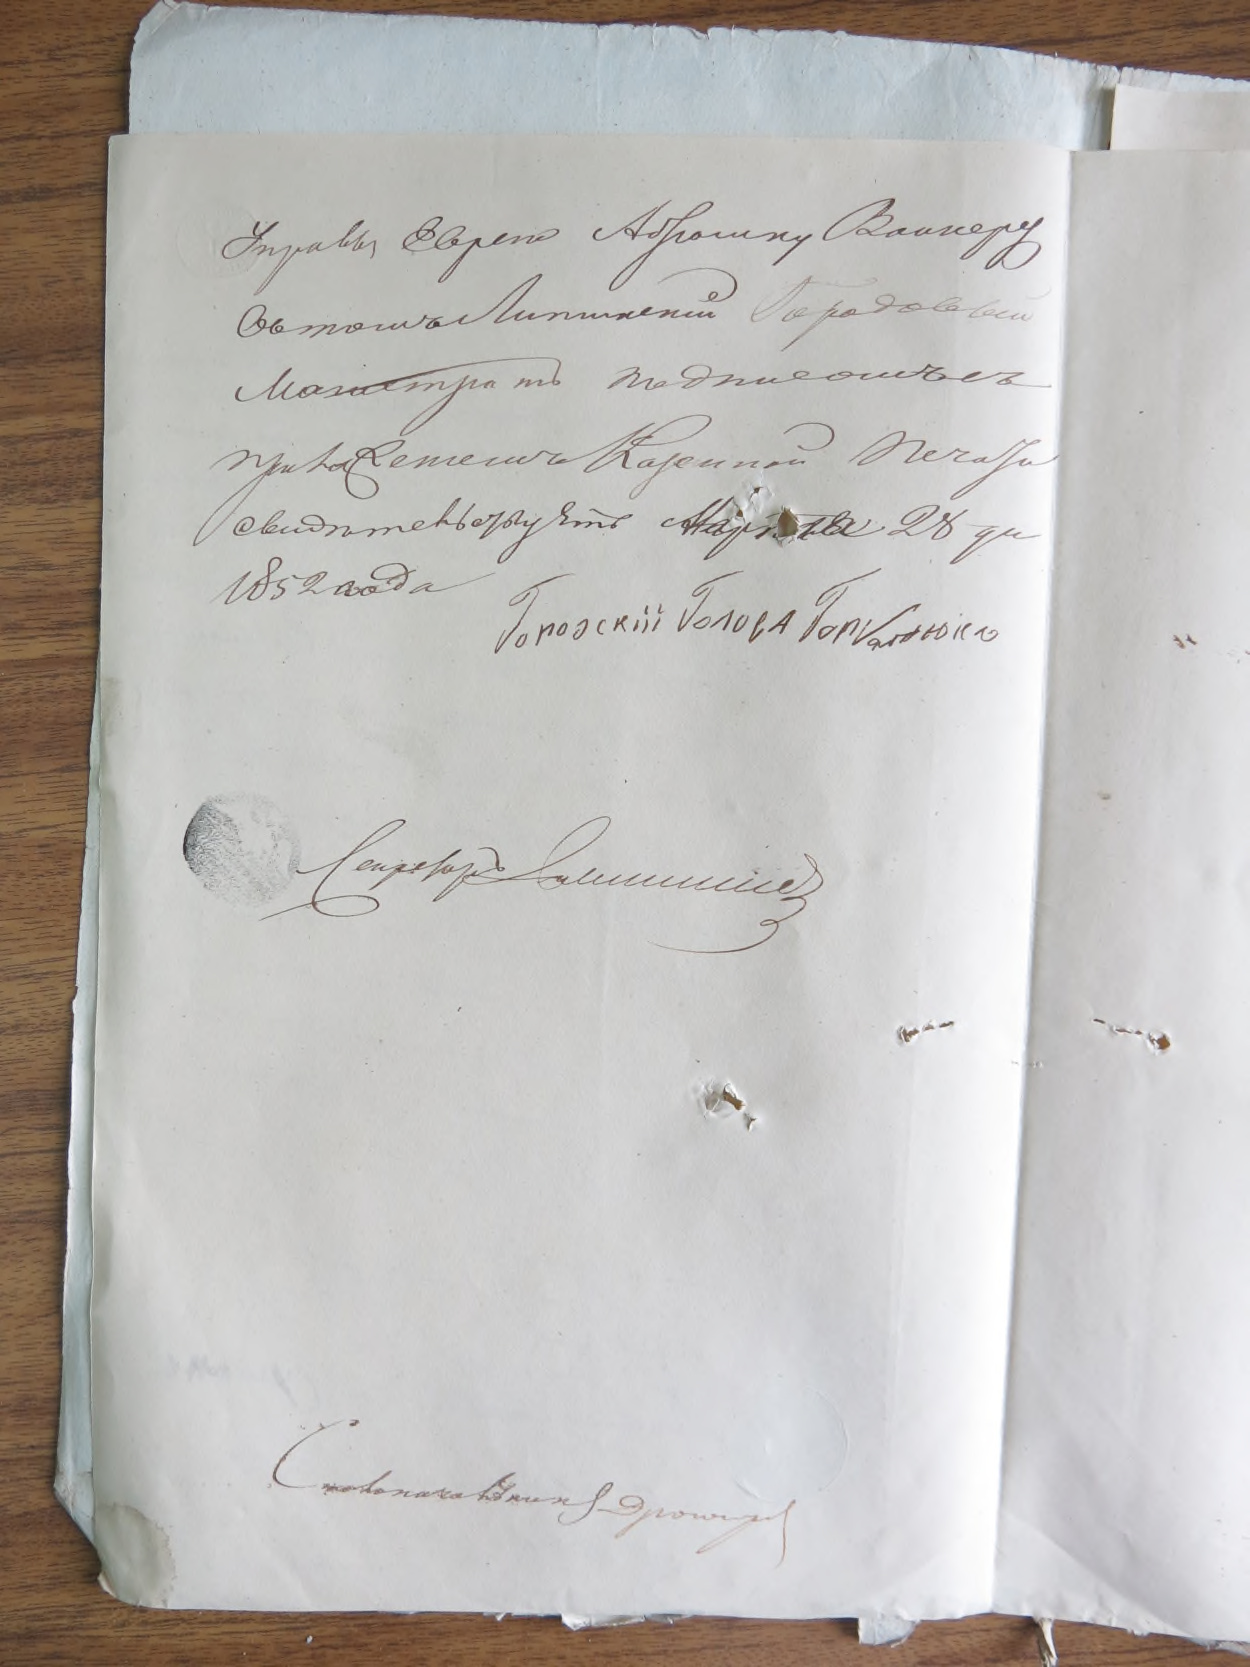 Управы Еврею Абрашку Ваинеру
въ томъ Липинскій Городовый
Магистратъ подписомъ съ
приложеніемъ Казенной Печати
свидѣтельствуетъ Марта 28 дн
1852 года
Городскій Голова
Секретарь
Столоначальникъ